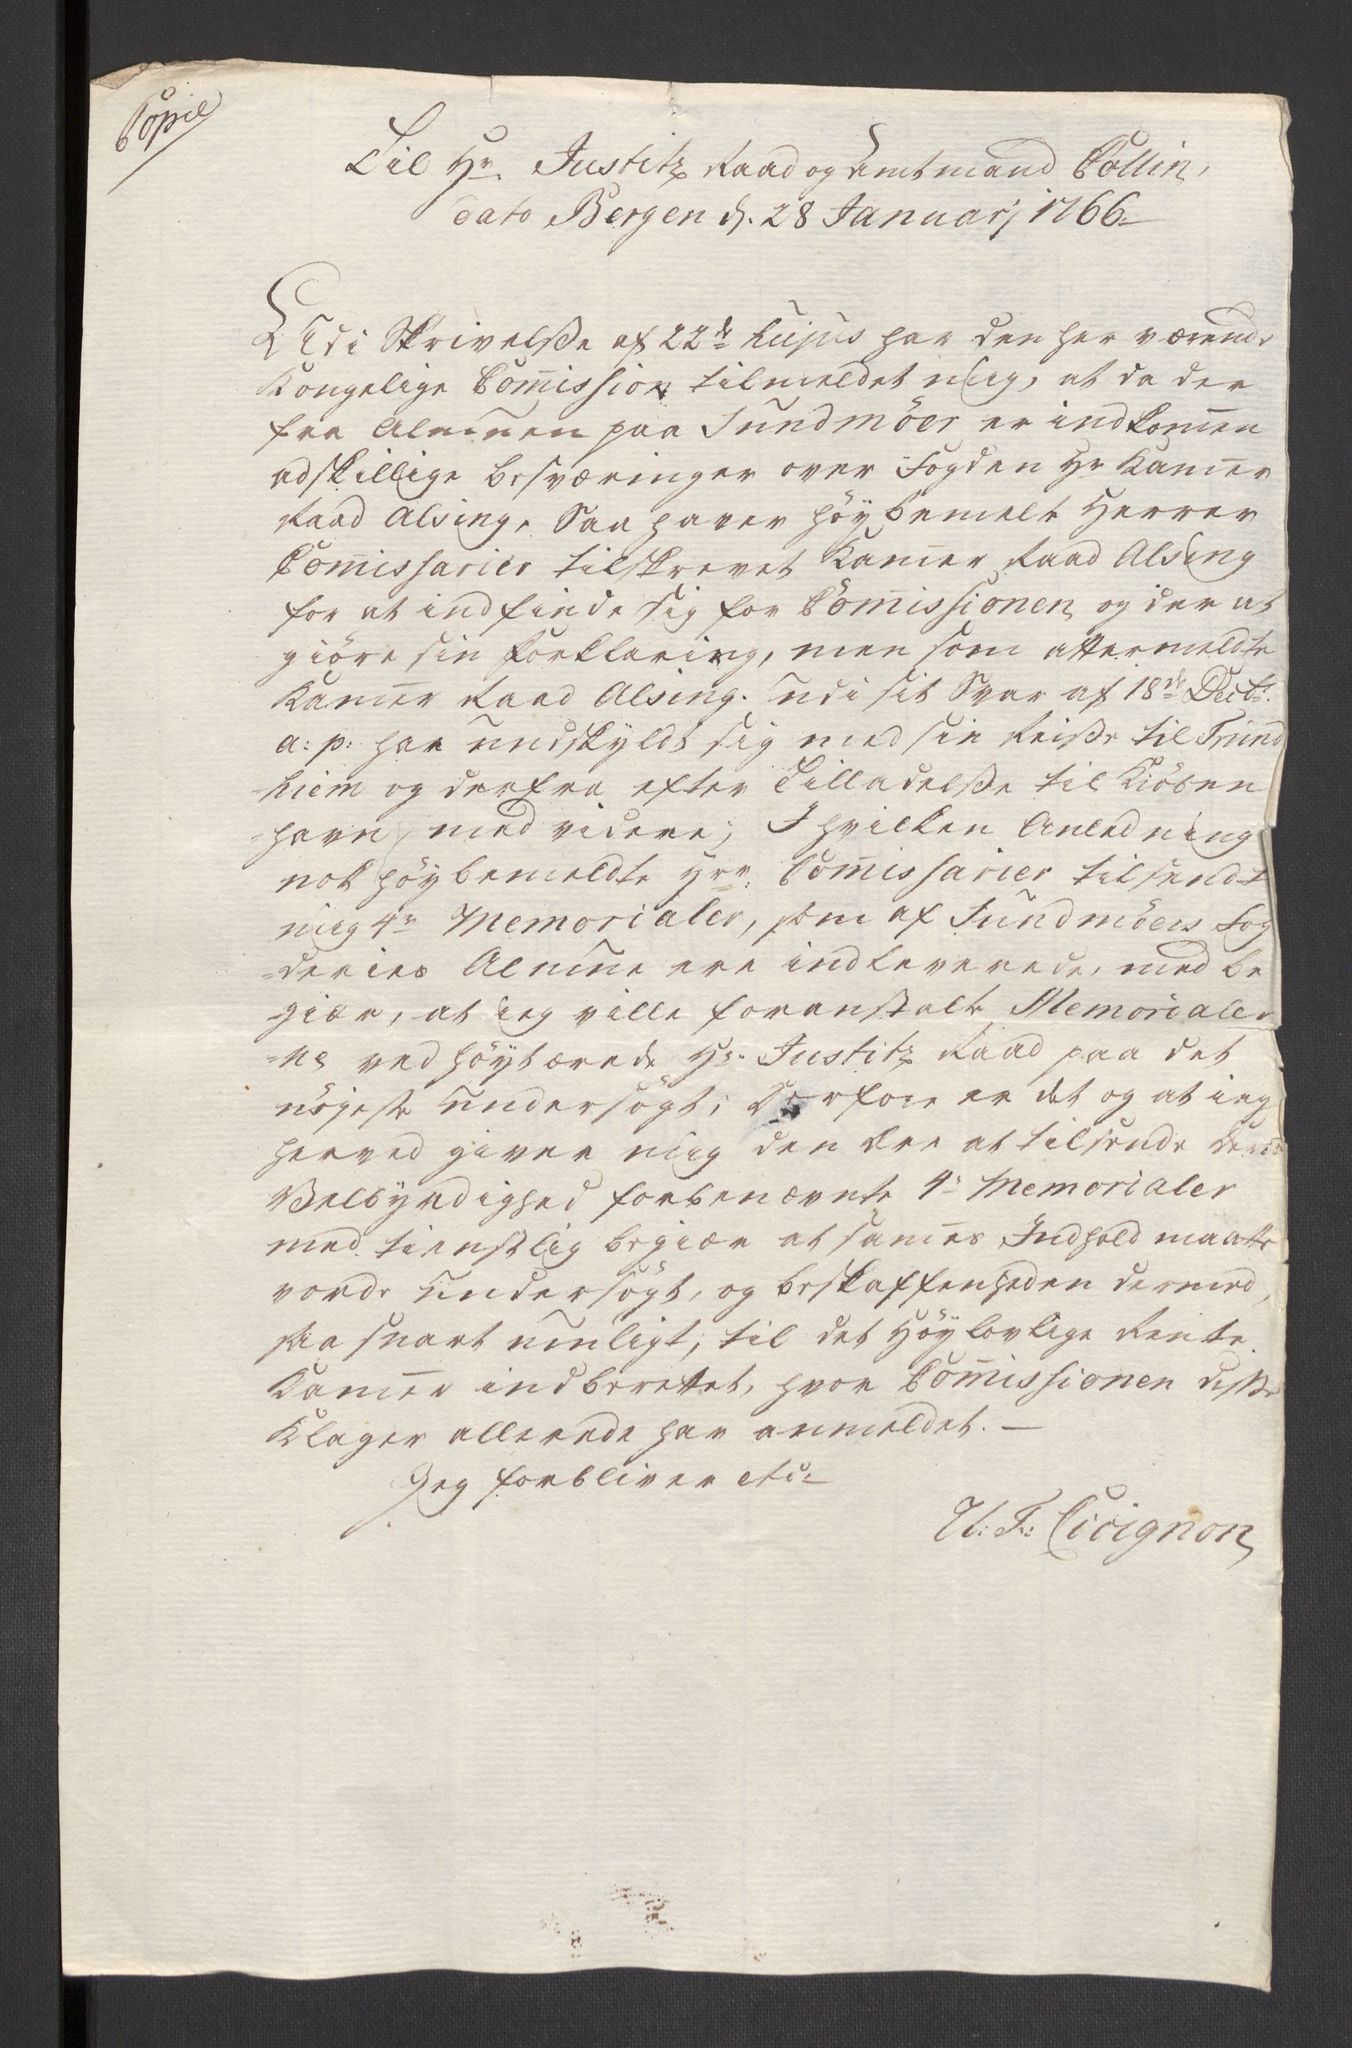 Copie
Til Hr. Justitz Raad og Amtmand Collin,
dato Bergen d. 28 Januarj 1766
Udi Skrivelsse af 22de hujus har den her værende
Kongelige Com̄ission tilmeldet mig, at da der
fra Almuen paa Sundmöer er indkom̄en
adskillige besværinger over Fogden Hr Kam̄er
Raad Alsing, Saa haver höybemelte Herrer
Com̄issarier tilskrevet Kam̄er Raad Alsing
for at indfinde sig for Com̄issionen og der at
giöre sin forklaring, men som attermeldte
Kam̄er Raad Alsing udi sit Svar af 18de Decbr.
a: p: har undskyldt sig med sin Reise til Trund
hiem og derfra efter Tilladelsse til Kiöben
-havn med videre; I hvilken Anledning
nok höybemeldte Hrr. Com̄issarier tilsendt
mig 4re Memorialer, som af Sundmöers Fog
-deries Almue ere indleverede, med be
-giær, at ieg ville foranstalte Memorialer
-ne ved höystærede Hr. Justitz Raad paa det
nöjeste undersögt; Derfore er det og at ieg
herved giver mig den Ære at tilsende Deres
Velbyrdighed forbenævnte 4re Memorialer
med tienstlig begiær at sam̄es Indhold maatte
vorde undersögt, og beskaffenheden dermed,
saa snart muligt, til det Höylovlige Rente
Kam̄er indberettet, hvor Com̄issionen disse
Klager allerede har anmeldet. —
Jeg forbliver etc:
U: F: Cicignon